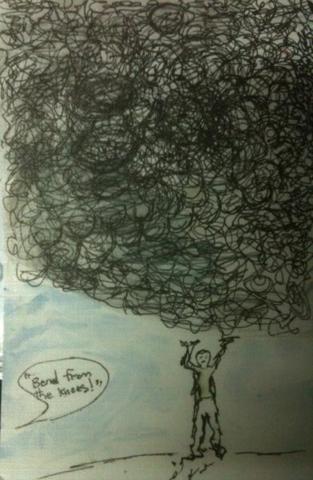 "Bend from
the knees!"